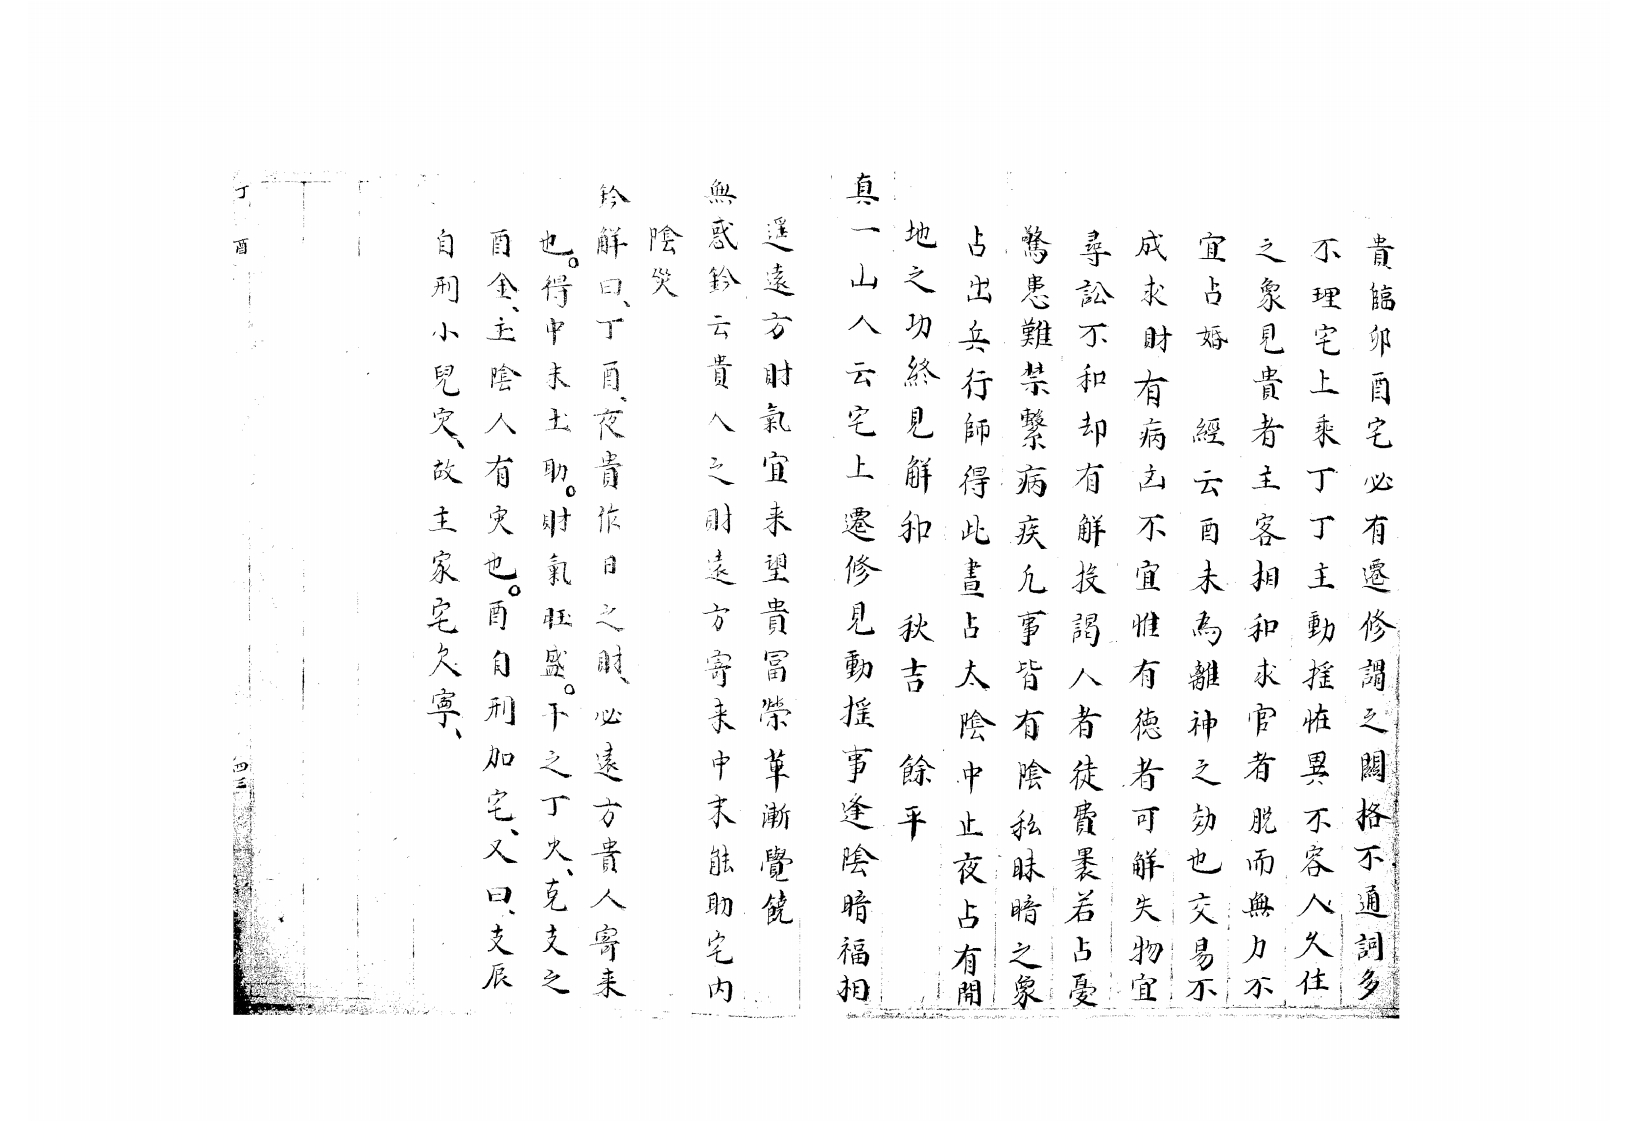 貴臨卯酉宅必有遷修謂之關格不通詞多
不理宅上乘丁丁主動搖怪異不容人久住
之象見貴者主客相和求官者脫而無力不
宜占婚　經云酉未為離神之効也交易不
成求財有病凶不宜惟有德者可解失物宜
尋訟不和却有解投謁人者徒費裹若占憂
驚患難禁繫病疾凡事皆有陰私昧暗之象
占出兵行師得此晝占太陰中止夜占有開
地之功終見解和　秋吉　餘平
真一山人云宅上遷修見動搖事逢陰暗福相
遥遠方財氣宜来望貴冨榮華漸覺饒
無惑鈐云貴人之財遠方寄来中末能助宅内
陰災
鈐解曰、丁酉、夜貴作日之財、必遠方貴人寄来
也。得中末土助。財氣旺盛。下之丁火、克支之
酉金、主陰人有灾也。酉自刑加宅、又曰、支辰
自刑小兒灾、故主家宅欠寧、
丁酉
四三